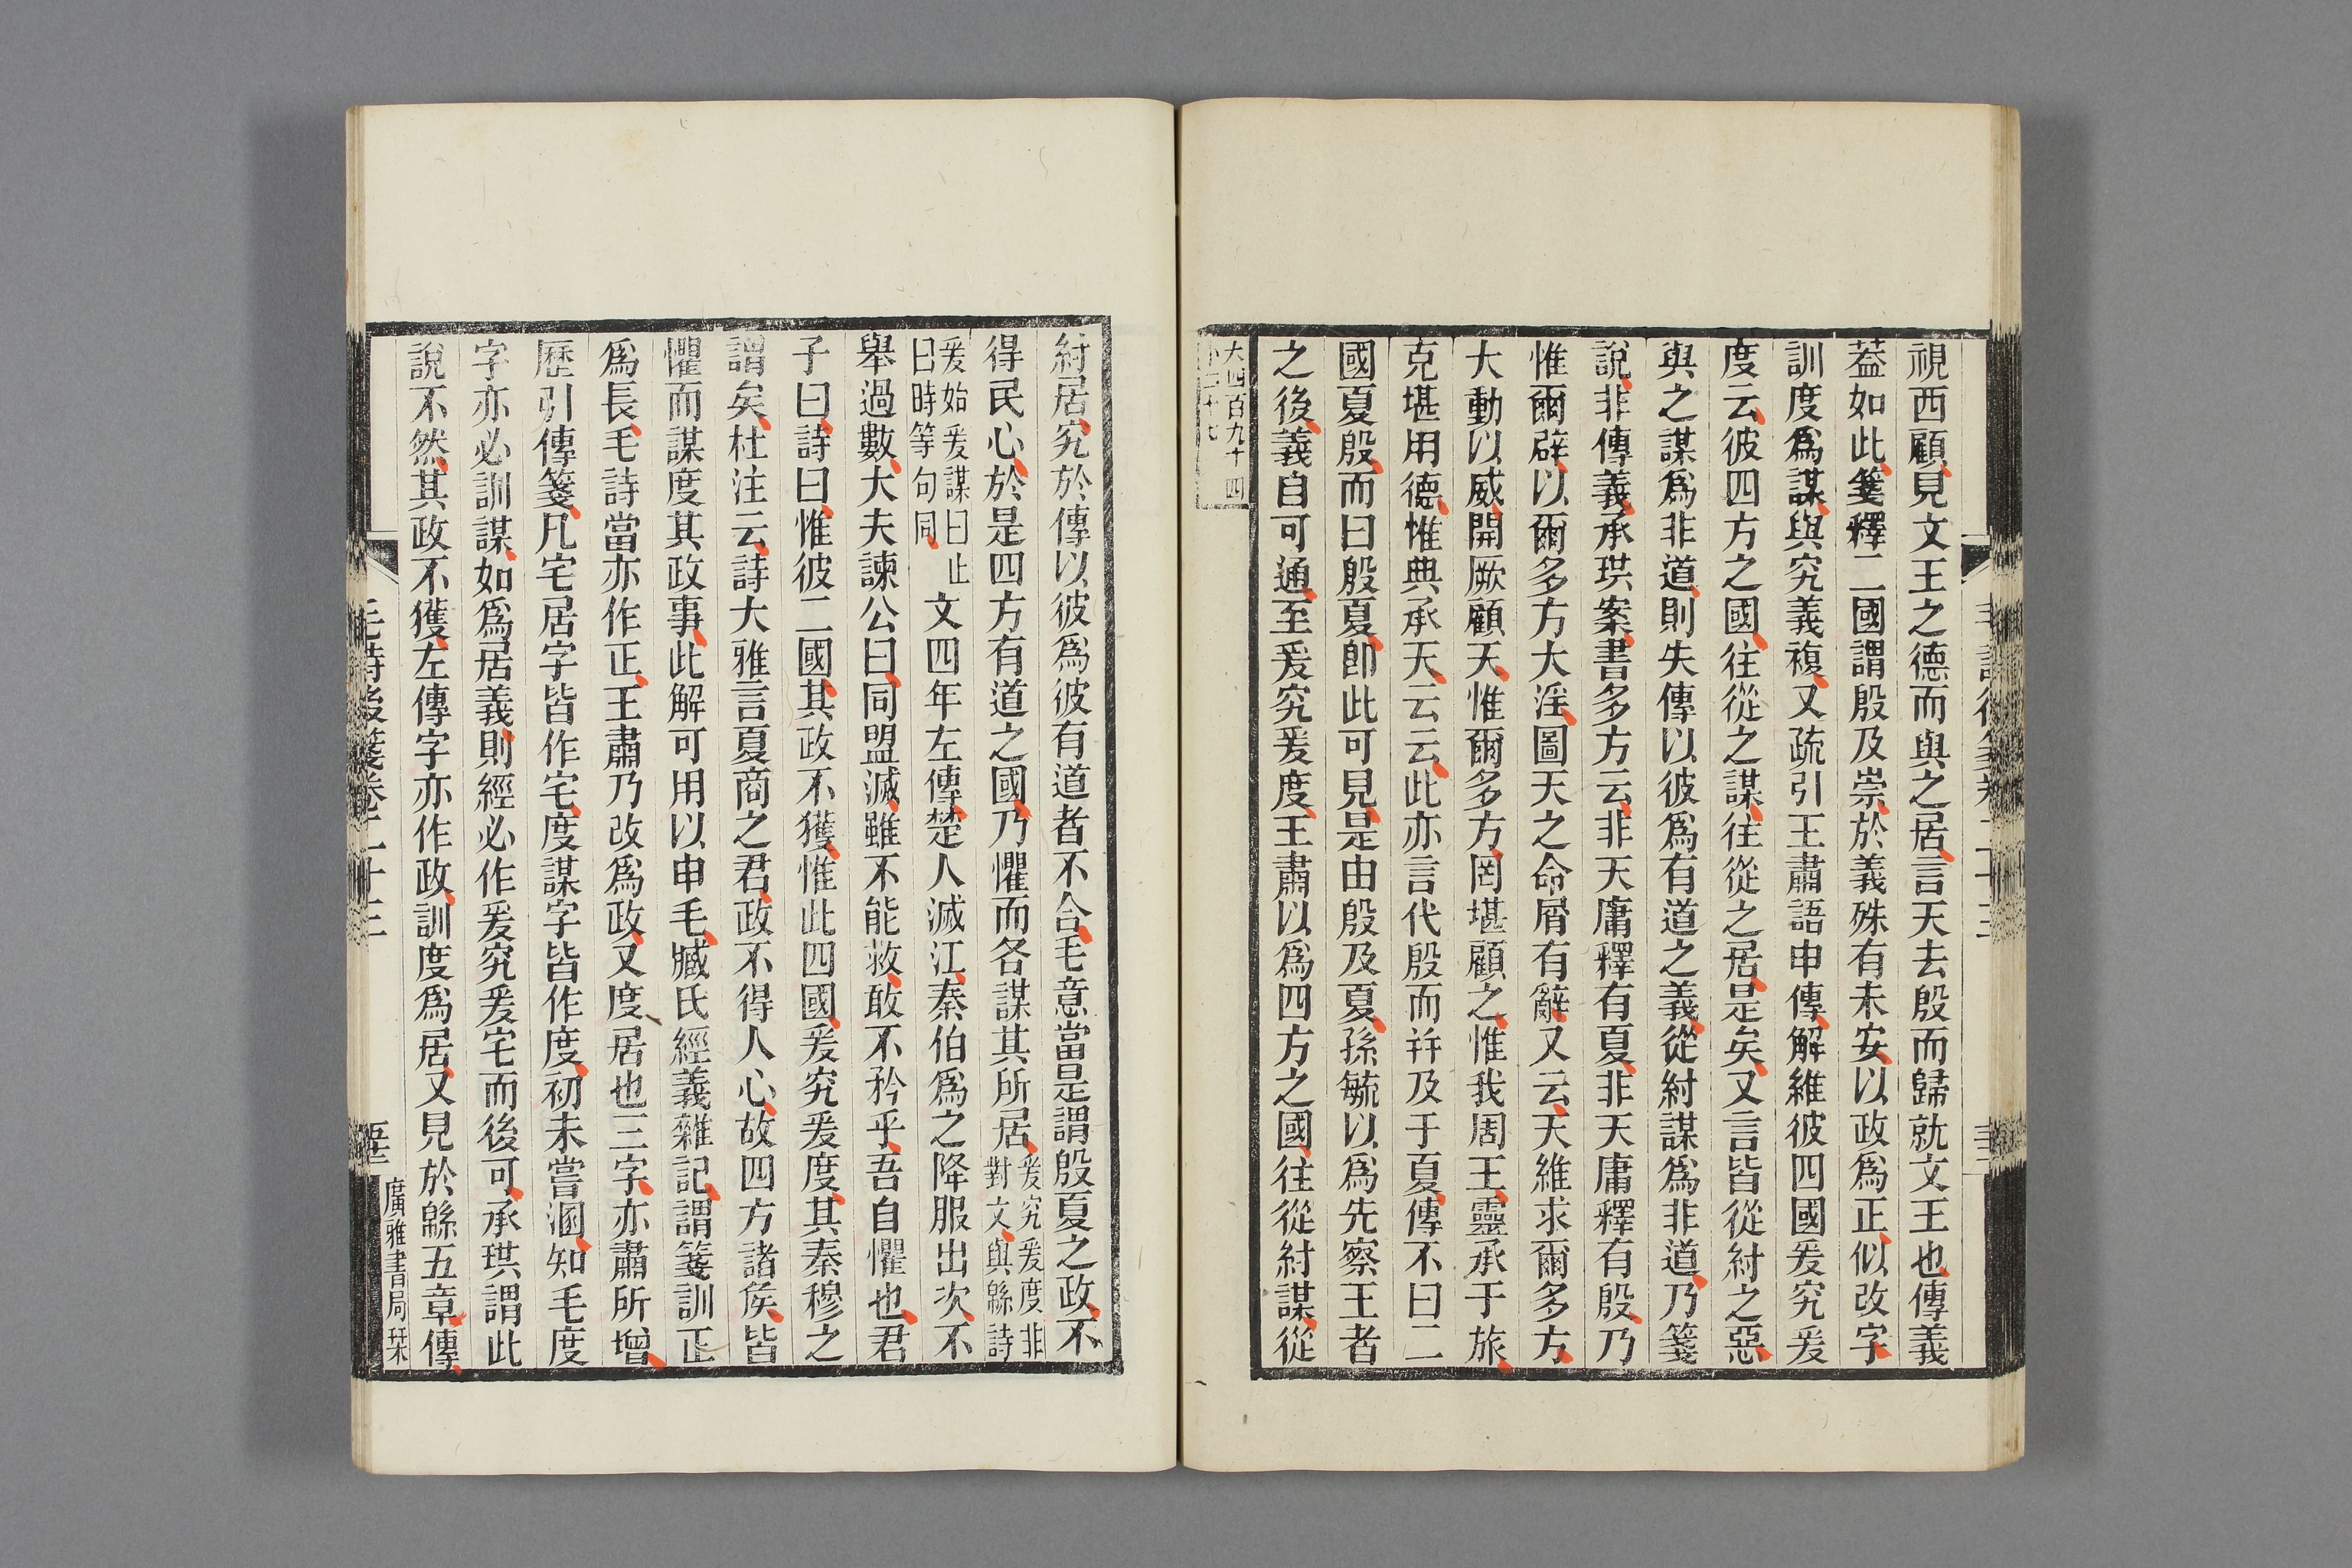 視西顧見文王之德而與之居言天去殷而歸就文王也傳義
葢如此箋釋二國謂殷及崇於義殊有未安以政爲正似改字
訓度爲謀與究義複又疏引王肅語申傳解維彼四國爰究爰
度云彼四方之國往從之謀往從之居是矣又言皆從紂之惡
與之謀爲非道則失傳以彼爲有道之義從紂謀爲非道乃箋
說非傳義承珙案書多方云非天庸釋有夏非天庸釋有殷乃
惟爾辟以爾多方大淫圖天之命屑有辭又云天維求爾多方
大動以威開厥顧天惟爾多方罔堪顧之惟我周王靈承于旅
克堪用德惟典承天云云此亦言代殷而幷及于夏傳不曰二
國夏殷而曰殷夏卽此可見是由殷及夏孫毓以爲先察王者
之後義自可通至爰究爰度王肅以爲四方之國往從紂謀從
大四百九十四
小二十七
紂居究於傳以彼爲彼有道者不合毛意當是謂殷夏之政不
得民心於是四方有道之國乃懼而各謀其所居爰究爰度非
對文與緜詩
爰始爰謀曰止
曰時等句同文四年左傳楚人滅江秦伯爲之降服出次不
舉過數大夫諫公曰同盟滅雖不能救敢不矜乎吾自懼也君
子曰詩曰惟彼二國其政不獲惟此四國爰究爰度其秦穆之
謂矣杜注云詩大雅言夏商之君政不得人心故四方諸侯皆
懼而謀度其政事此解可用以申毛臧氏經義雜記謂箋訓正
爲長毛詩當亦作正王肅乃改爲政又度居也三字亦肅所增
歷引傳箋凡宅居字皆作宅度謀字皆作度初未嘗溷知毛度
字亦必訓謀如爲居義則經必作爰究爰宅而後可承珙謂此
說不然其政不獲左傳字亦作政訓度爲居又見於緜五章傳
毛詩後箋卷二十三
廣雅書局栞